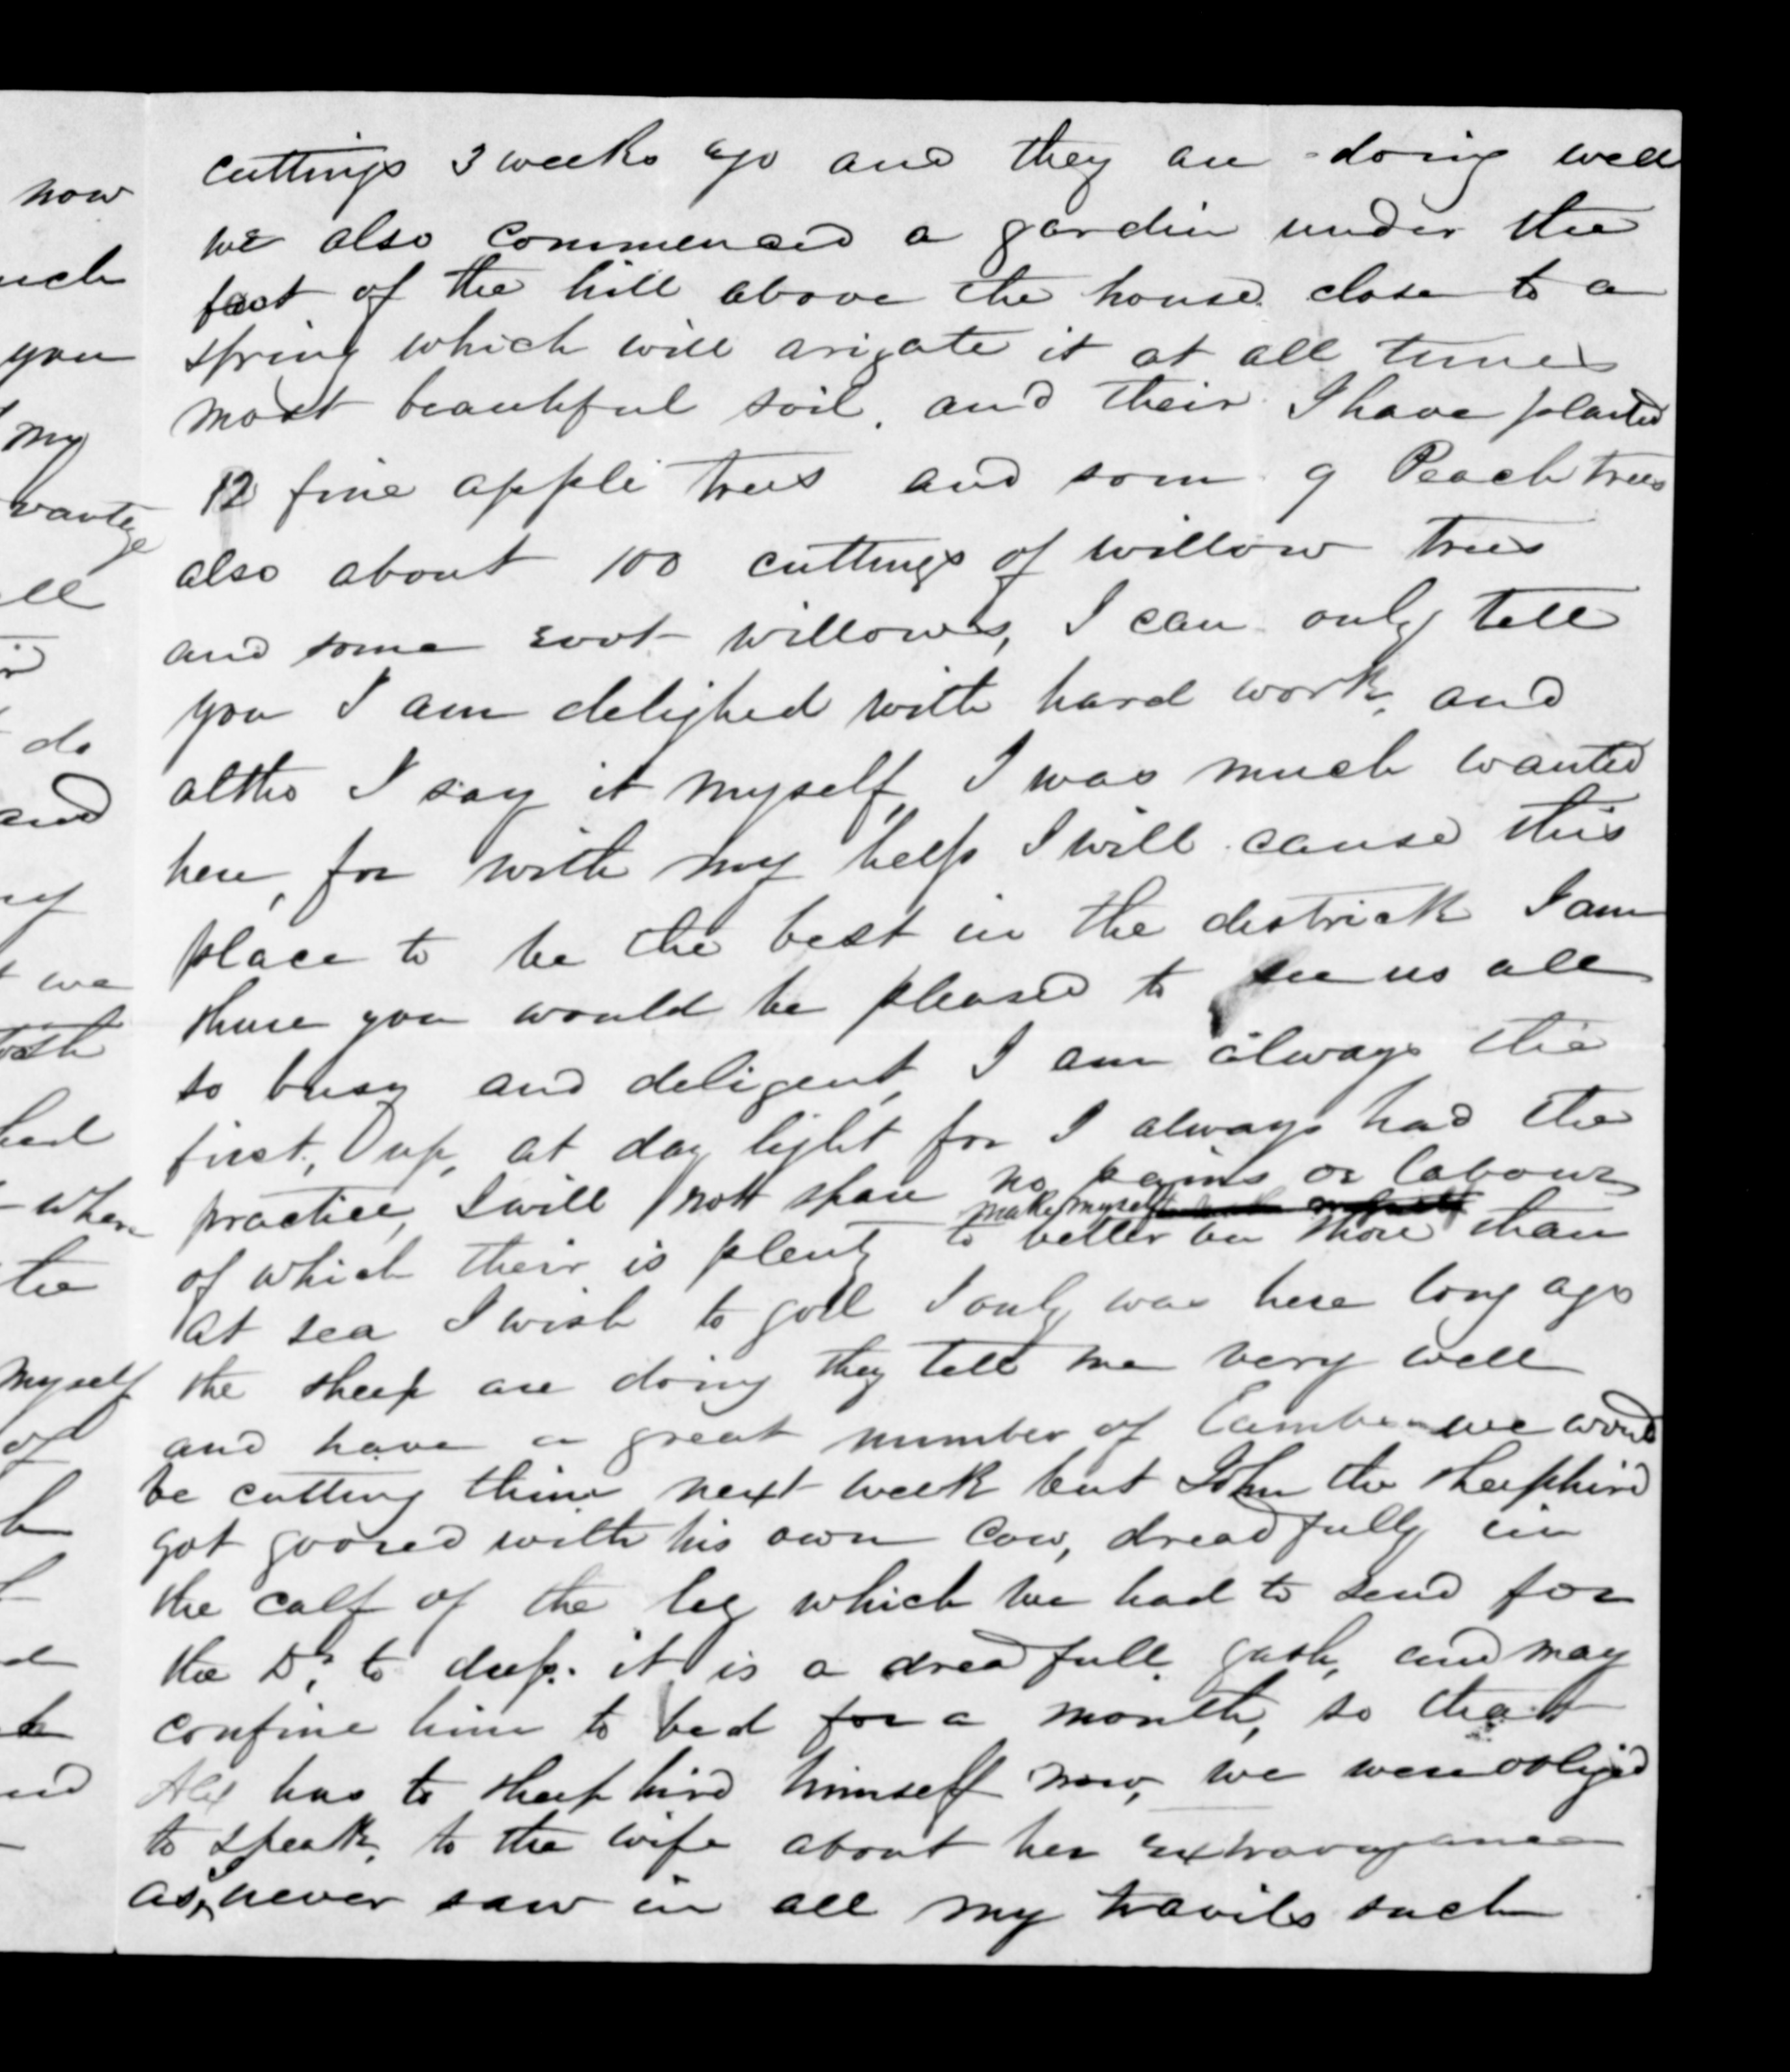 now
uch
you
my
vantge
ell
do
and
my
we
wish
had
when
the
myself
of
cuttings 3 weeks ago and they are doing well
we also commenced a gardin under the
foot of the hill above the house close to a
spring which will arigate it at all times
most beautiful soil. and their I have planted
12 fine apple trees and som 9 Peach trees
also about 100 cuttings of willow trees
and some root willows, I can only tell
you I am delighed with hard work, and
altho I say it myself, I was much wanted
here, for with my help I will cause this
place to be the best in the districk I am
shure you would be pleased to see us all
so busy and deligent, I am always the
first, up, at day light for I always had the
practice, I will nott spare no pains or labour
of which their is plenty to make myself better on shore than
at sea I wish to god I only was here long ago
the sheep are doing they tell me very well
and have a great number of Lambs we would
be cutting them next week but John the sheephird
got goored with his own cow, dreadfully in
the calf of the leg which we had to send for
the Dr, to it is a dreadfull gash, and may
confine him to bed for a month, so that
Alex has to sheephird himself now, we were obliged
to speak, to the wife about her extravagance
as I never saw in all my travils such